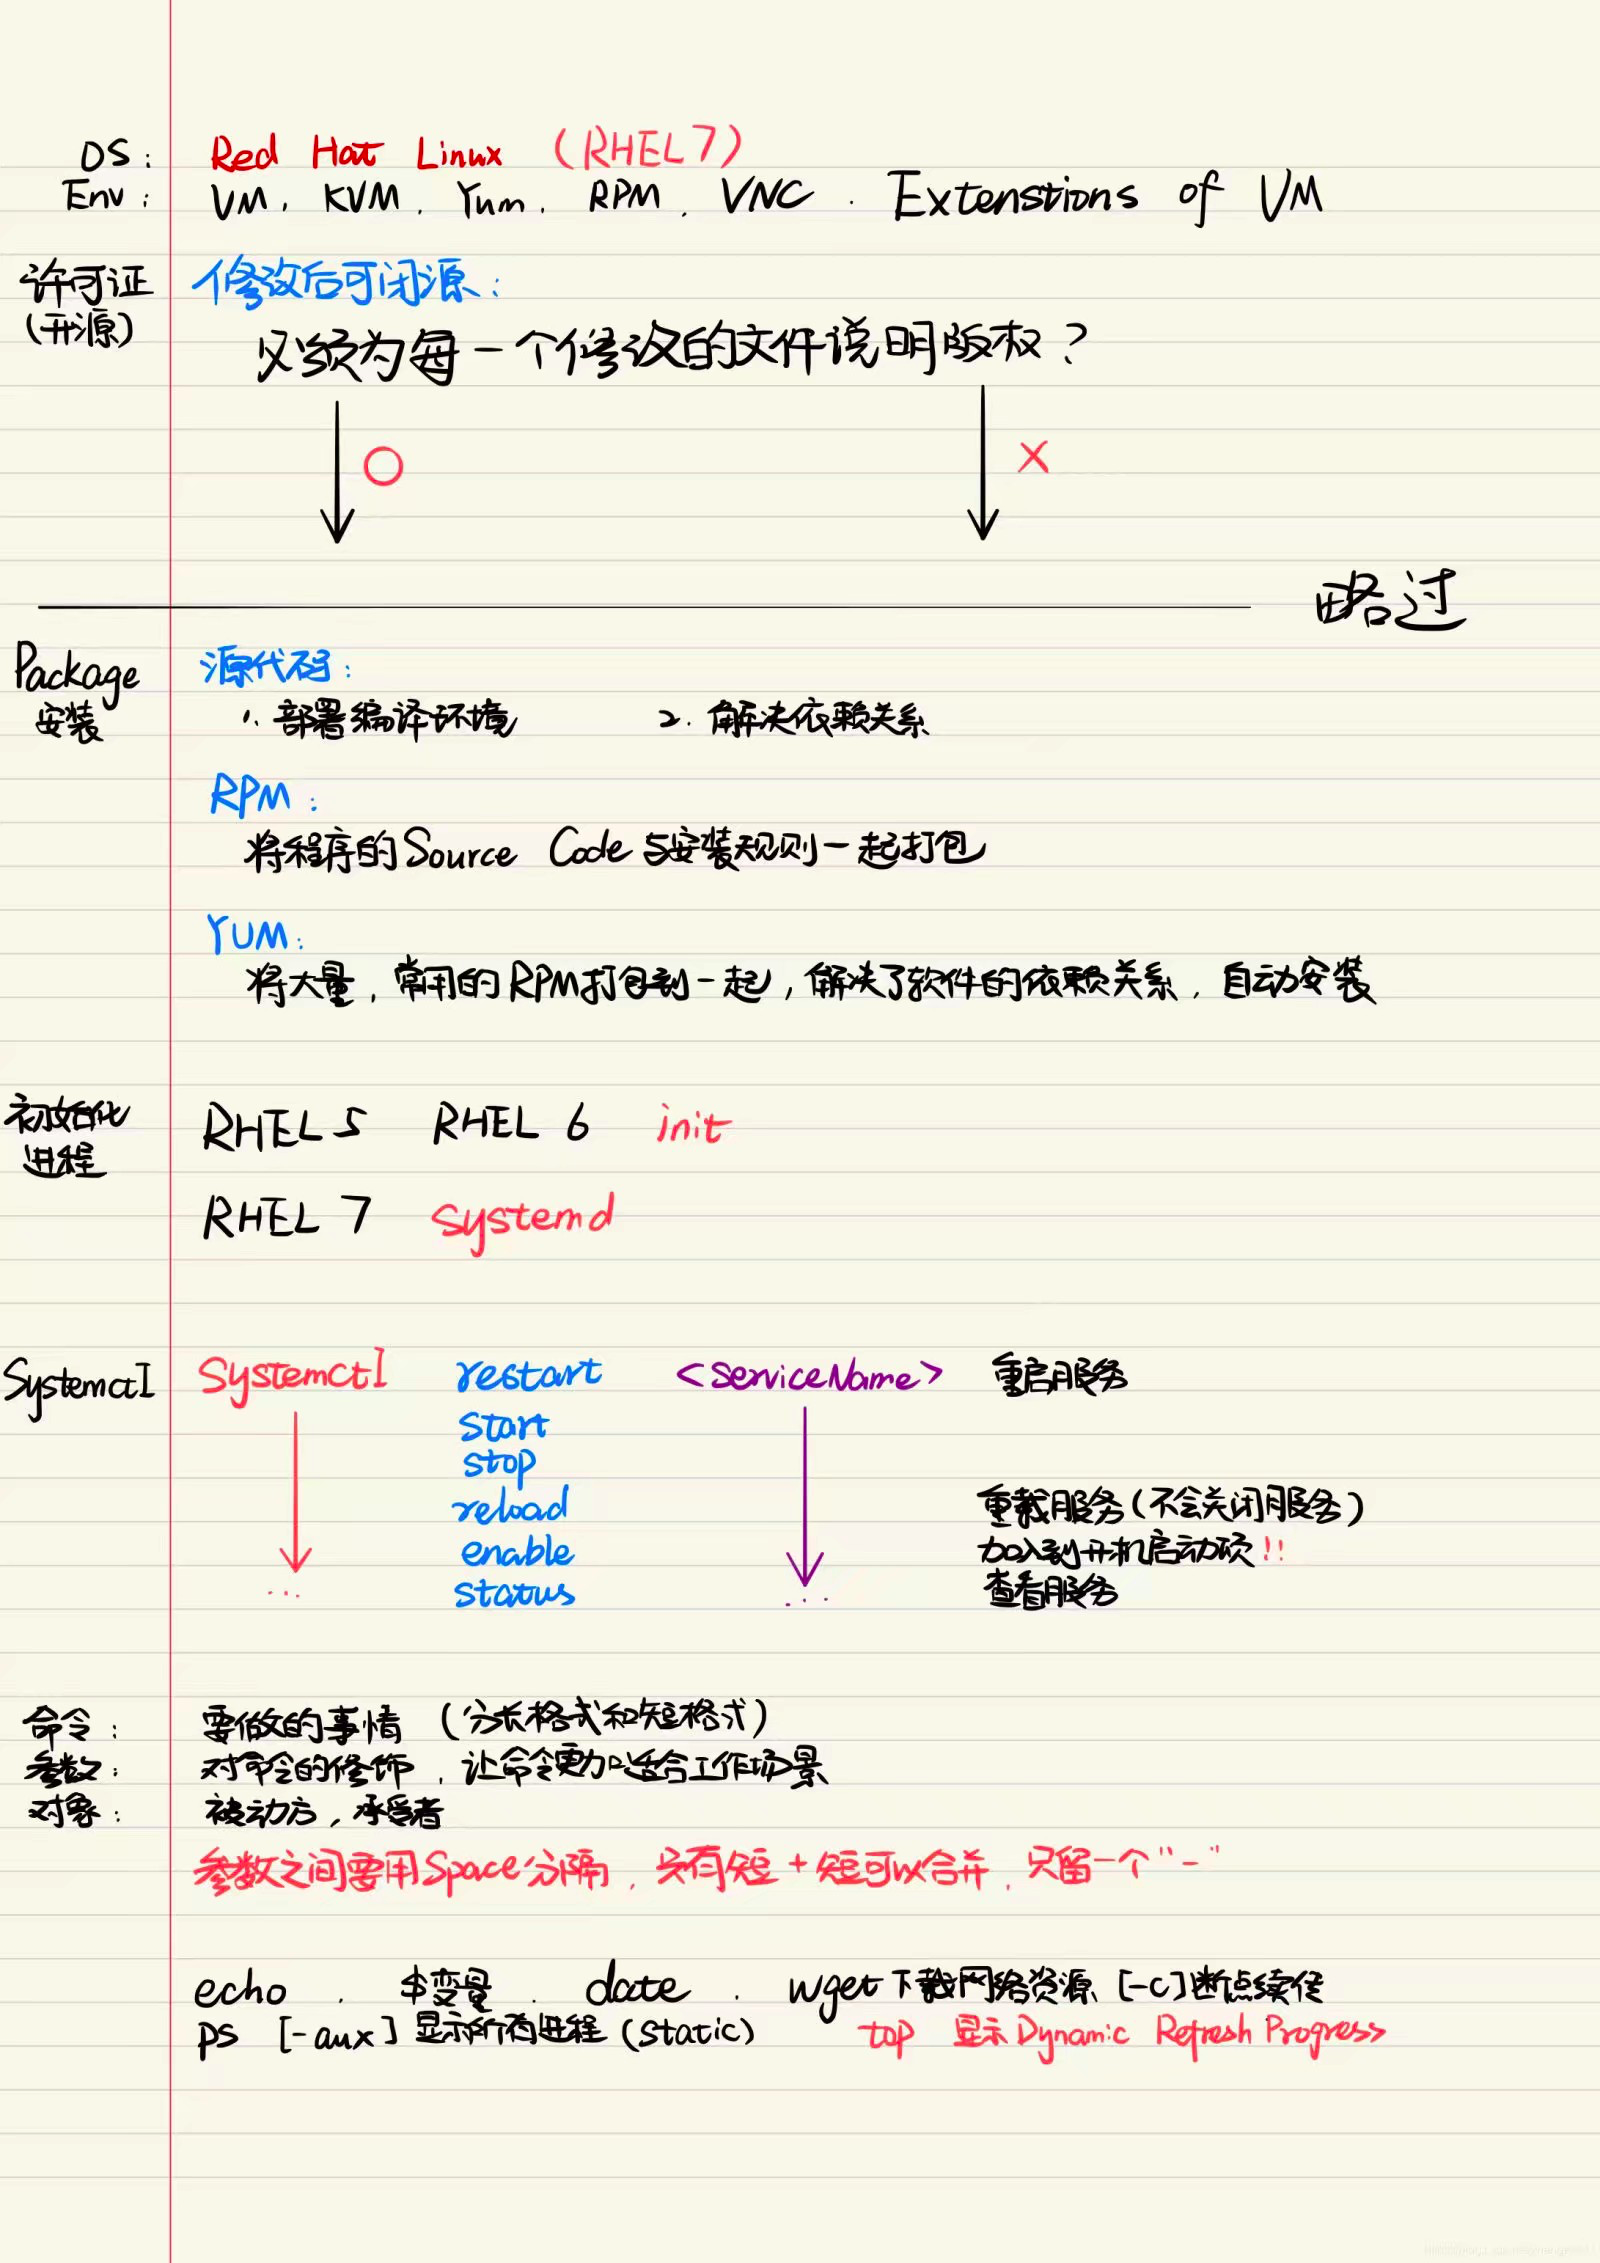 OS: Red Hat Linux (RHEL7)
Env: VM, KVM, Yum, RPM, VNC. Extenstions of VM
许可证 修改后可闭源:
(开源)
必须为每一个修改的文件说明版权?
○ ×
略过
Package 源代码:
安装 1. 部署编译环境 2. 解决依赖关系
RPM:
将程序的Source Code与安装规则一起打包
YUM:
将大量,常用的RPM打包到一起,解决了软件的依赖关系,自动安装
初始化 RHEL5 RHEL 6 init
进程
RHEL 7 systemd
Systemctl Systemctl restart <ServiceName> 重启服务
start
stop
reload 重载服务(不会关闭服务)
enable 加入到开机启动项!!
... status ... 查看服务
命令: 要做的事情 (分长格式和短格式)
参数: 对命令的修饰,让命令更加适合工作场景
对象: 被动方,承受者
参数之间要用Space分隔,只有短+短可以合并,只留一个"-"
echo . $变量 . date . wget下载网络资源 [-c]断点续传
ps [-aux]显示所有进程(static) top 显示Dynamic Refresh Progress